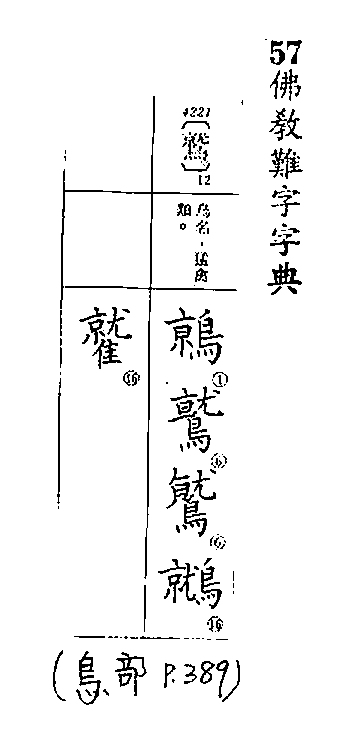 57佛教難字字典
4221
〔鷲〕
12
鳥名,猛禽
類。
䳎①
鷲⑥
⑥
⑯
⑯
(鳥部 P.389)